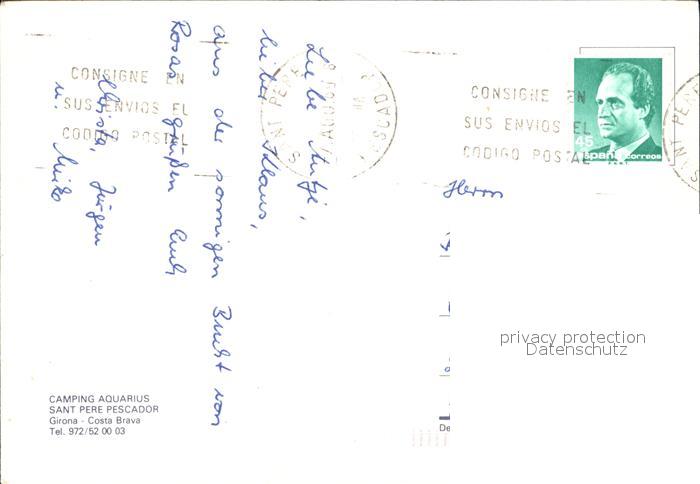 Liebe Antje,
lieber Klaus,
aus der sonnigen Bucht von
Rosas grüßen Euch
Christa, Jürgen
u. Mirko
CONSIGNE EN
SUS ENVIOS EL
CODIGO POSTAL
SANT PERE PESCADOR
CONSIGNE EN
SUS ENVIOS EL
CODIGO POSTAL
SANT PE
45
España correos
Herrn
privacy protection
Datenschutz
De
CAMPING AQUARIUS
SANT PERE PESCADOR
Girona - Costa Brava
Tel. 972/52 00 03